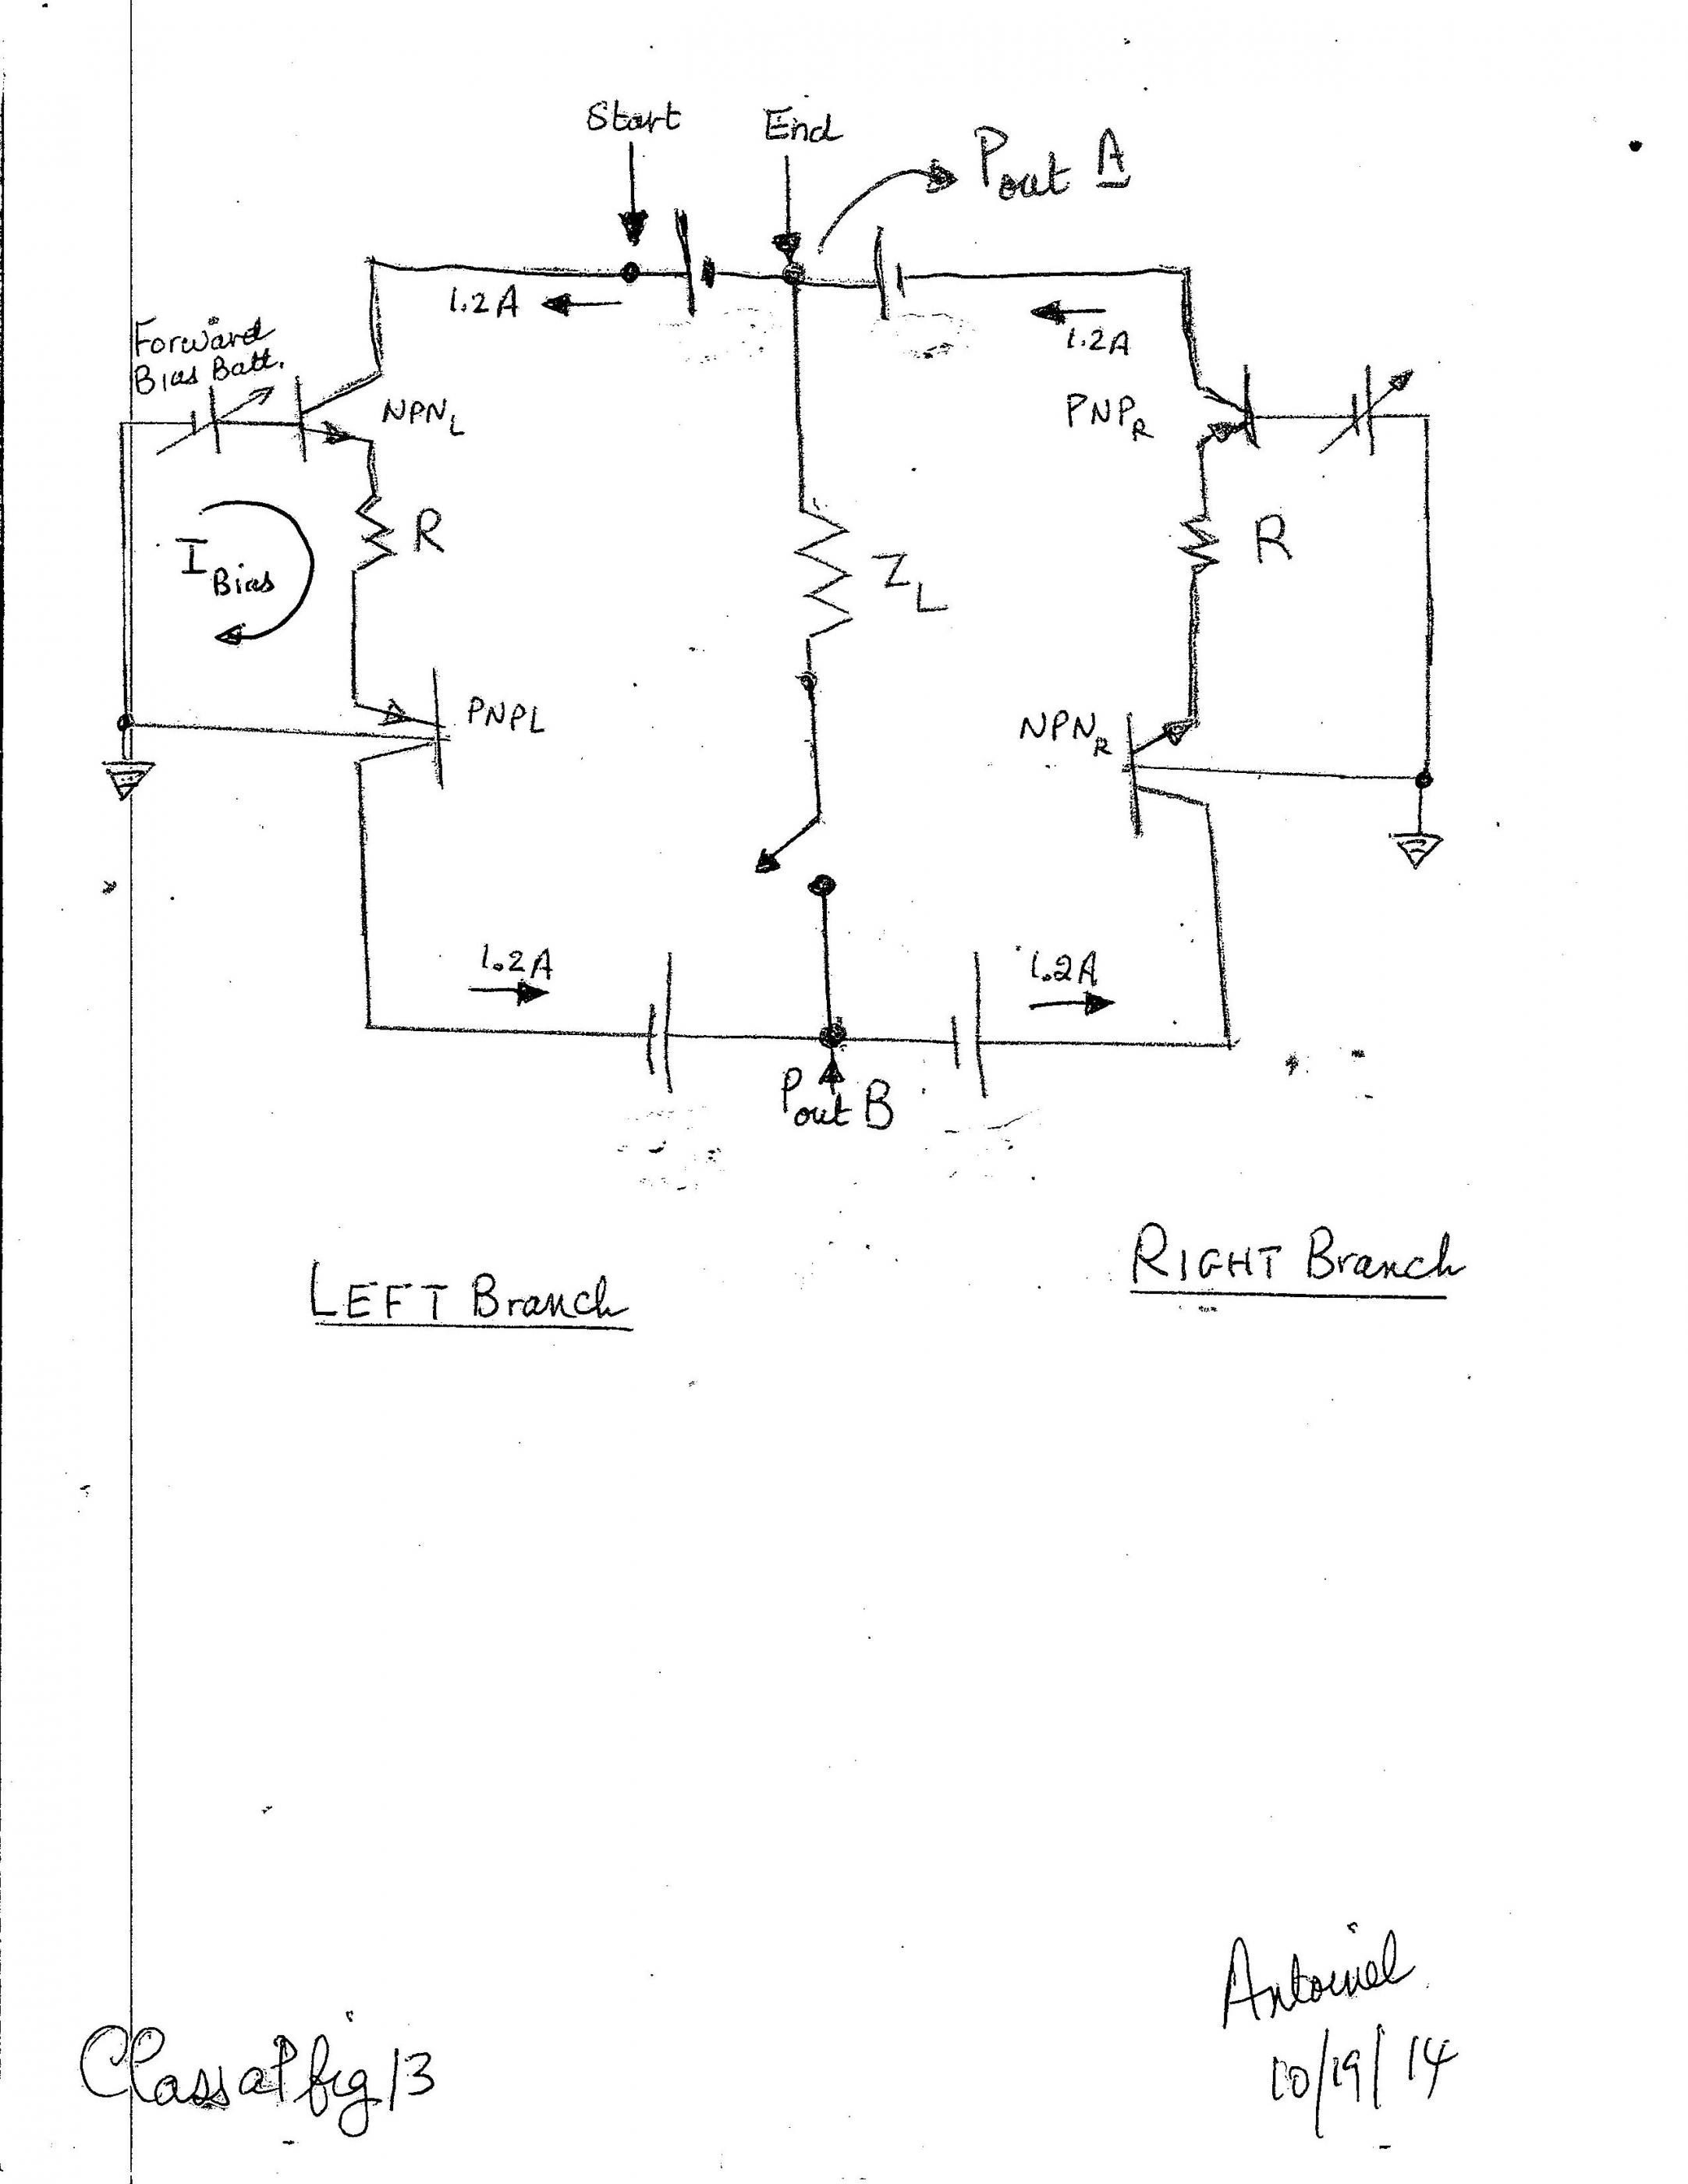 Start
End
Pout A
1.2A
1.2A
Forward
Bias Batt.
NPNL
PNPR
R
R
IBias
ZL
PNPL
NPNR
1.2A
1.2A
Pout B
LEFT Branch
RIGHT Branch
Antoinel
10/19/14
ClassaP fig 13